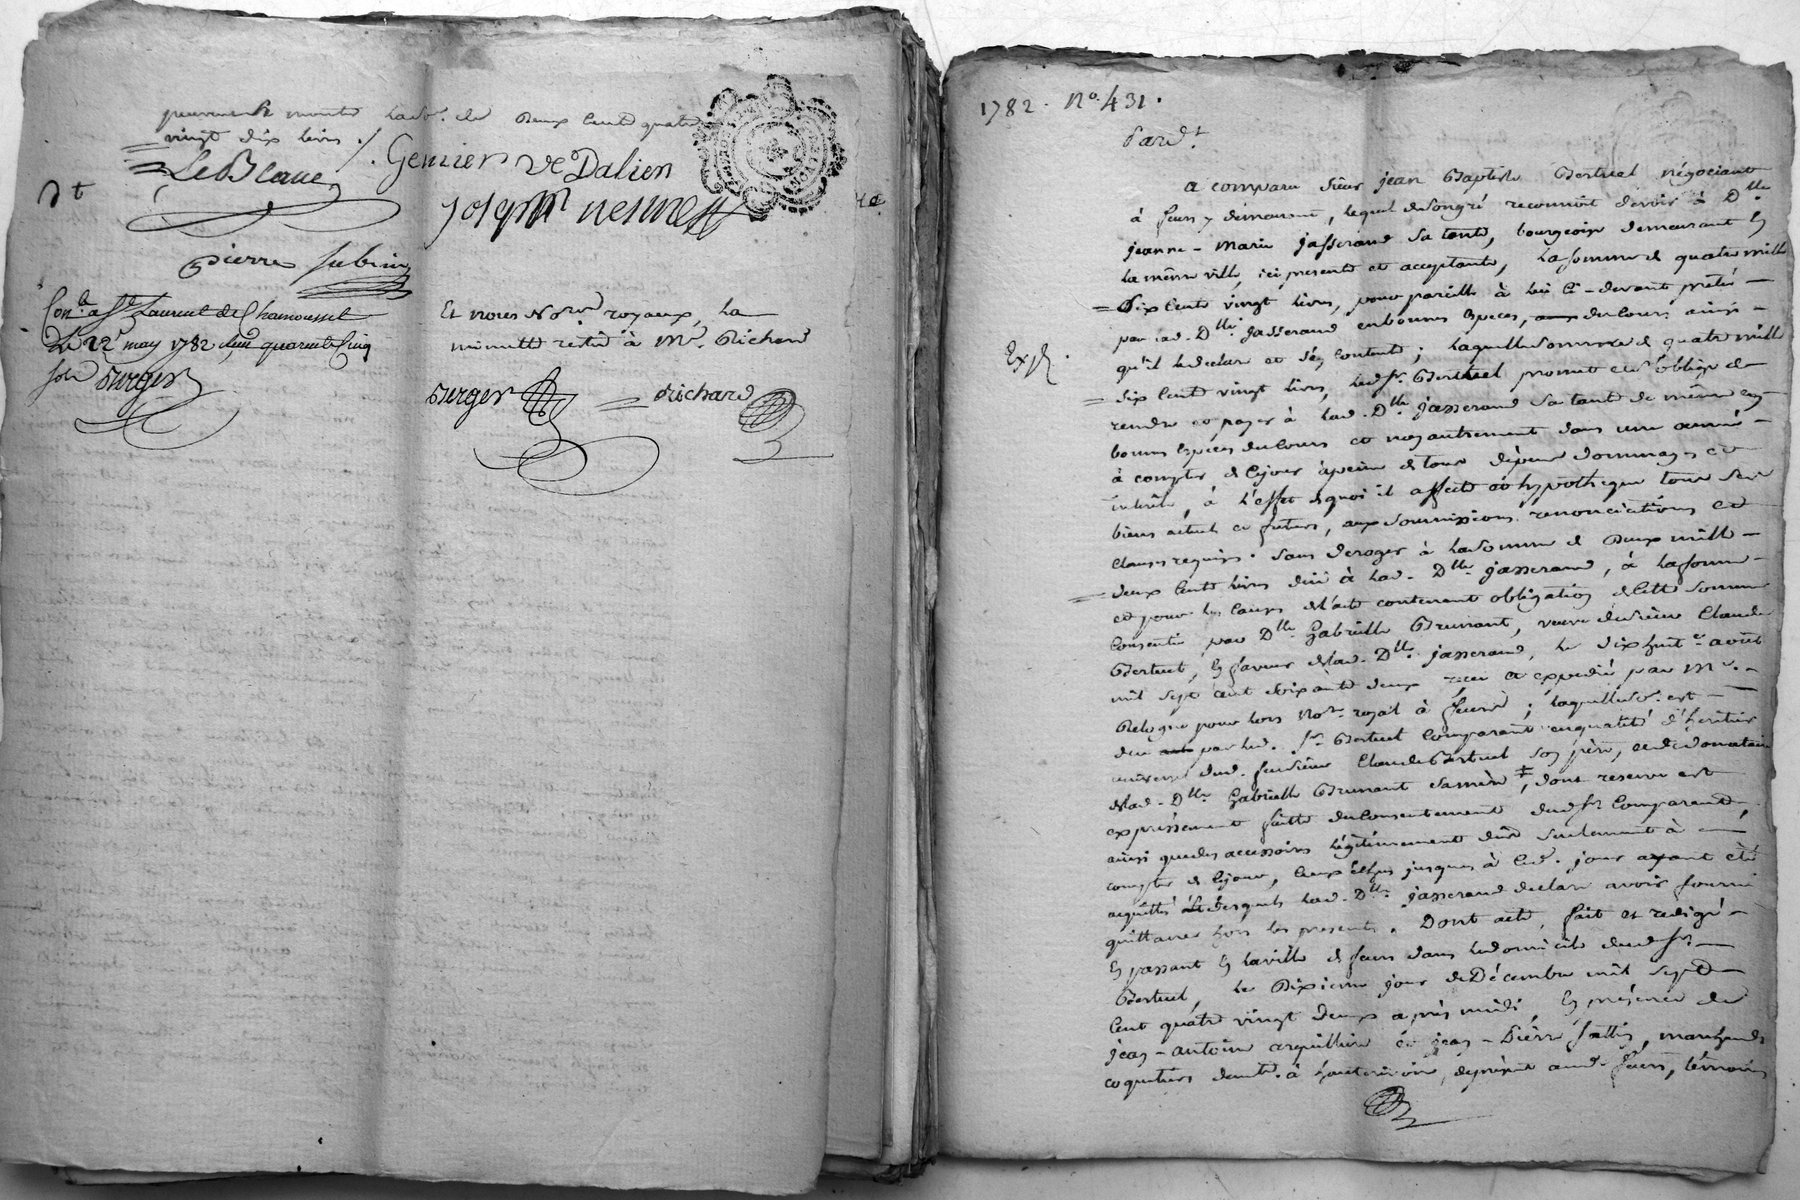 peuvent monter lad. de Deux Cents quatre
vingt dix livres ./.
LeBlanc
Genier Ve Dalien
Dt
Joseph
Pierre Subrin
Conlé a St Laurent de Chamousset
Le 22 may 1782 quarente Cinq
sols Burger
Et nous Nores royaux, la
minutte restée à Me Richard
Burger
Richard
1782. No. 431.
Pard.t
a comparu Sieur jean Baptiste Bertuel négociant
à feurs y demeurant, lequel de son gré reconnoit devoir à Dlle
jeanne-marie jasserand sa tante, bourgeoise demeurant En
la même ville, ici presente et acceptante, la somme de quatre mille
Six Cents vingt livres, pour pareille à lui Ci-devant prêtée
par lad. Dlle jasserand en bonnes Especes, du Cours ainsi
qu'il le declare et s'en contente; laquelle somme de quatre mille
Exp.
Six Cents vingt livres, led. Sr Bertuel promet et s'oblige de
rendre et payer à lad. Dlle jasserand sa tante de même en
bonnes Especes du Cours et non autrement dans une année
à compter de Ce jour à peine de tous dépens dommages et
intérêts, à l'effet de quoi il affecte et hypotheque tous ses
biens actuels et futurs, aux soumissions renonciations et
Clauses requises. Sans deroger à la Somme de Deux mille
deux Cents livres düe à lad. Dlle jasserand, à la forme
et pour les Causes de l'acte contenant obligation de Cette Somme
Consentie par Dlle Gabrielle Brunant, veuve du Sieur Claude
Bertuel, En faveur de lad. Dlle jasserand, le dix huite août
mil Sept Cent Soixante deux reçu et expedié par Me
Relogue pour lors Nore royal à feurs; laquelle Se est
due par led. Sr Bertuel Comparant en qualité d'héritier
universel dud. feu Sieur Claude Bertuel Son père, et de donataire
de lad. Dlle Gabrielle Brunant Sa mère, dont reserve est
expressément faitte du Consentement dud. Sr Comparant,
ainsi que des accessoires légitimement dûs Seulement à
compter de Ce jour, Ceux échus jusques à Ced. jour ayant été
acquittés desquels lad. Dlle jasserand declare avoir fourni
quittance hors les presentes. Dont acte, fait et redigé
En passant En la ville de feurs dans le domicile dud. Sr
Bertuel, le Dixieme jour de Décembre mil Sept
Cent quatre vingt deux après midi, En présence de
jean-antoine arquilliere et jean-Pierre fattin, marchands
coquetiers demts. à hauterivoire, de présent aud. feurs, témoins